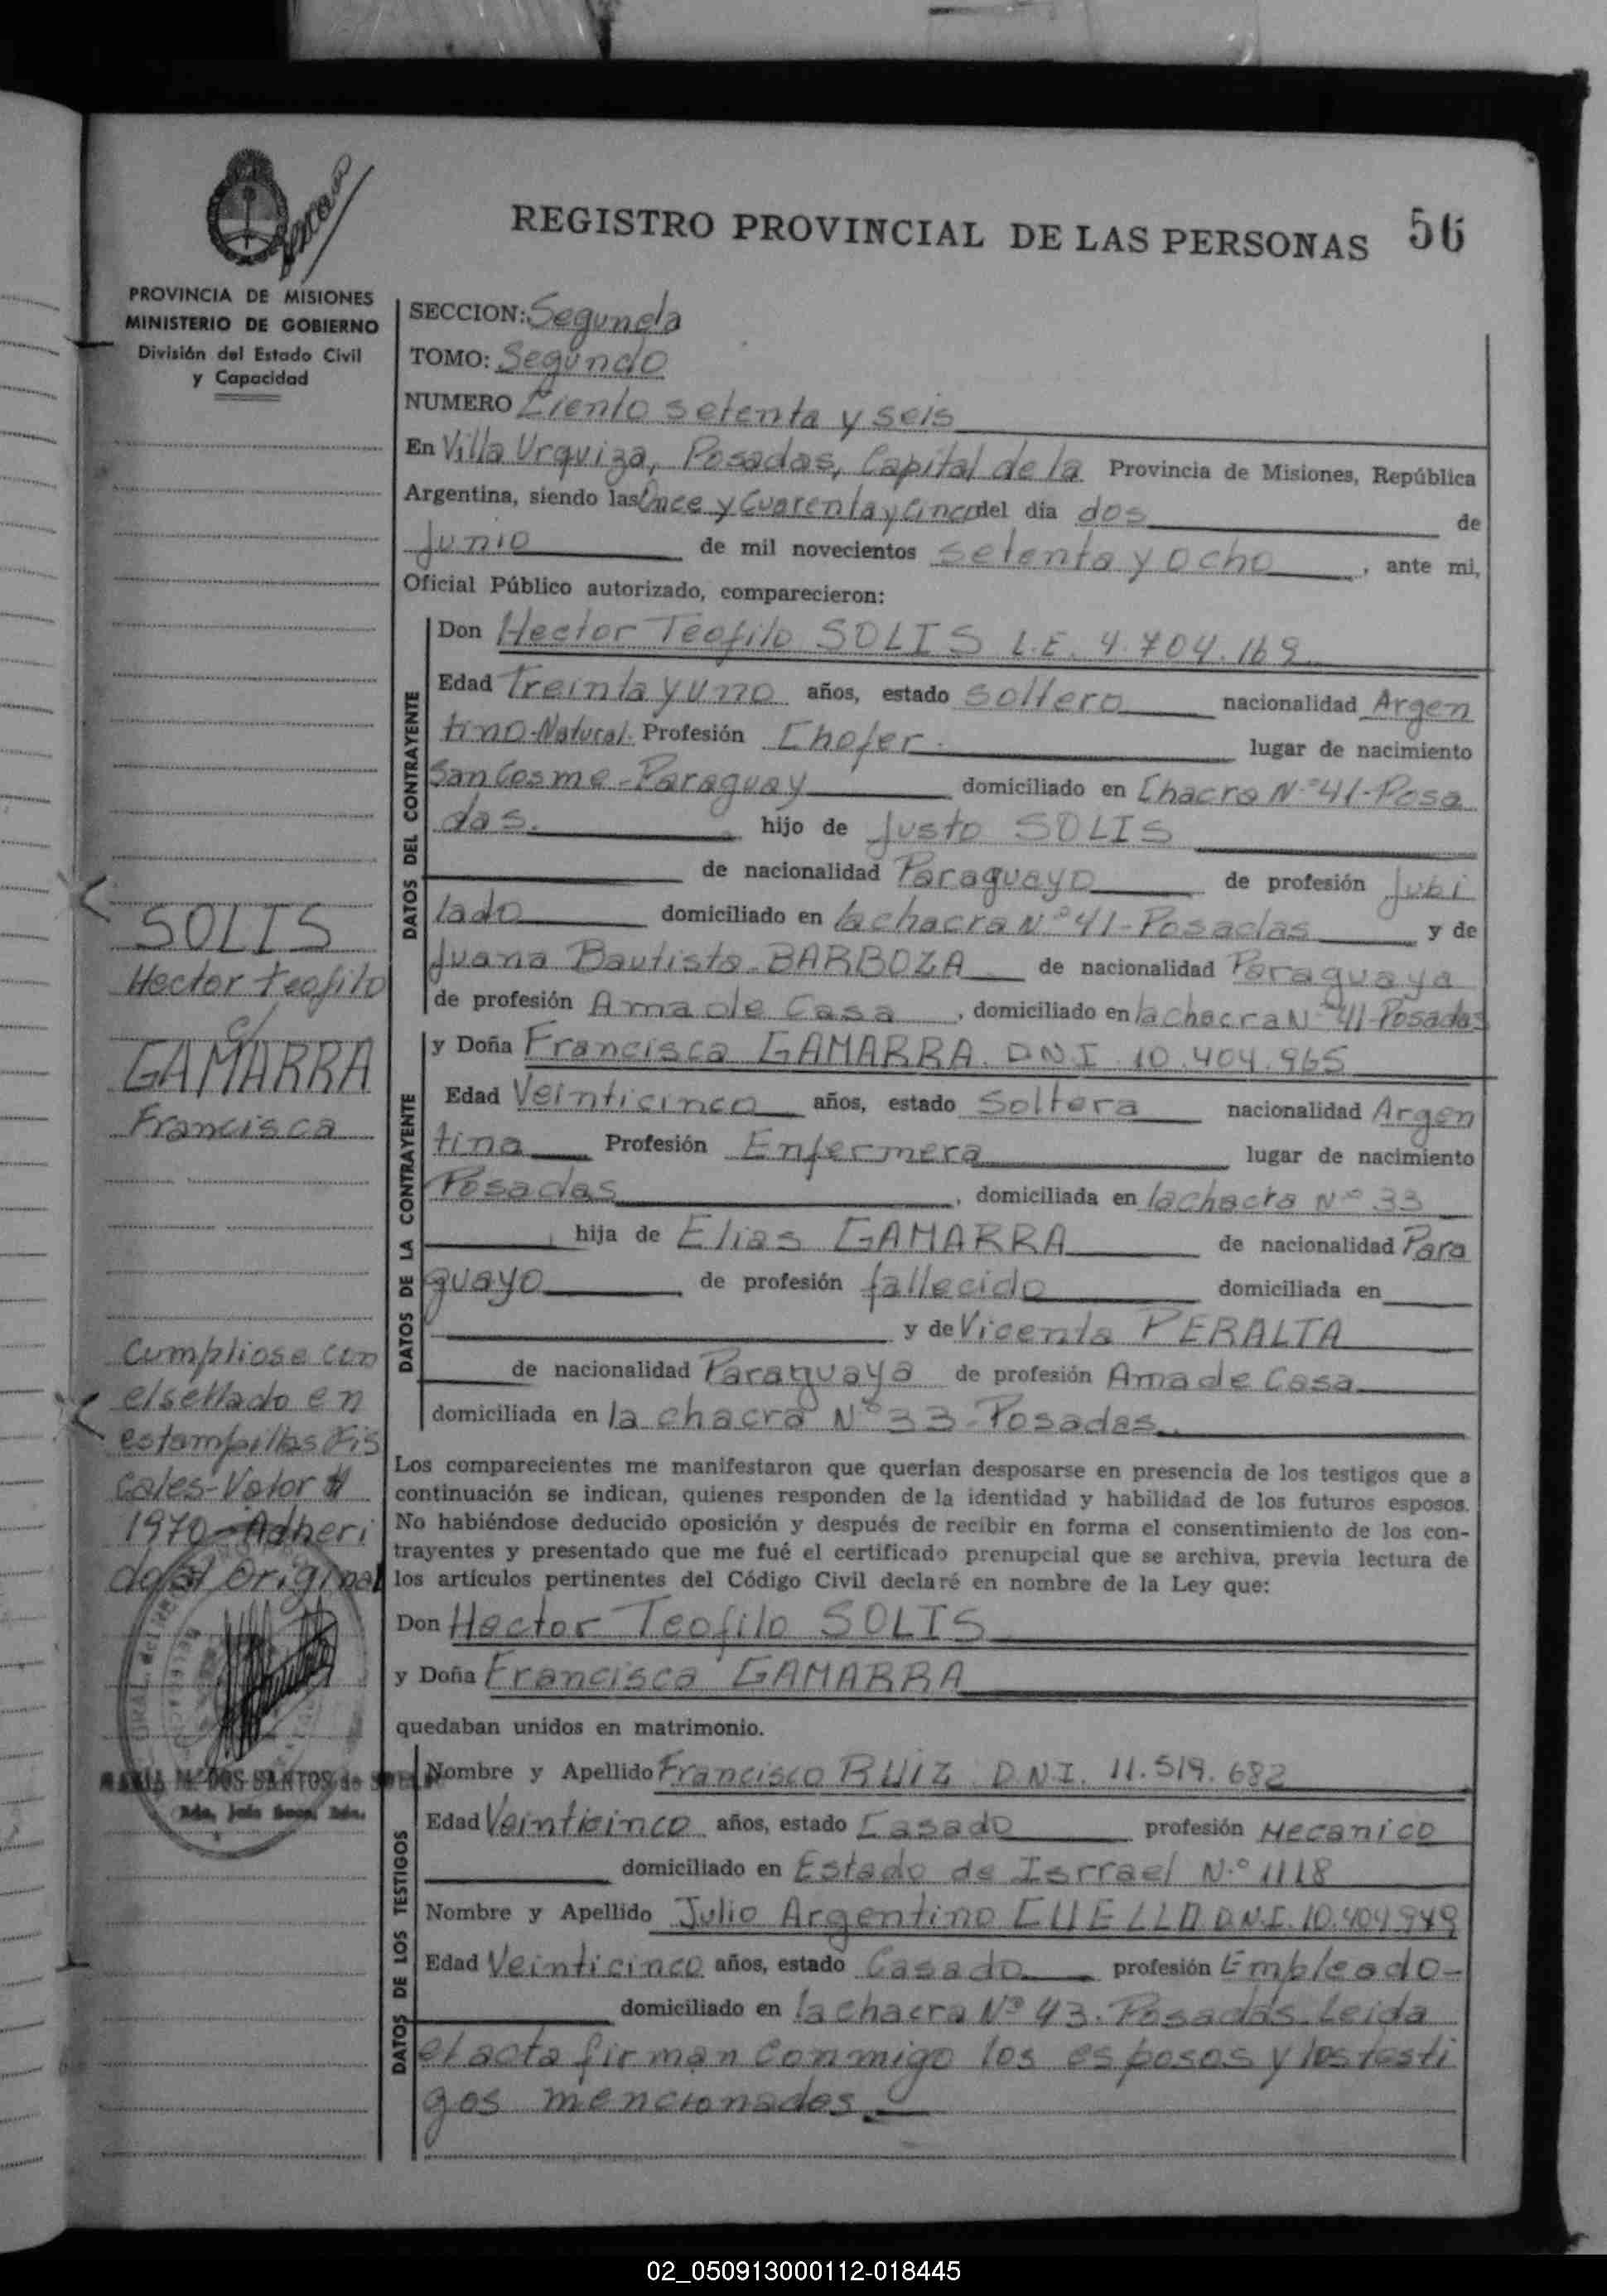 REGISTRO PROVINCIAL DE LAS PERSONAS 56
PROVINCIA DE MISIONES
MINISTERIO DE GOBIERNO
División del Estado Civil
y Capacidad
SECCION: Segunda
TOMO: Segundo
NUMERO Ciento setenta y seis
En Villa Urquiza, Posadas, Capital de la Provincia de Misiones, República
Argentina, siendo las Once y Cuarenta y Cinco del día dos de
Junio de mil novecientos setenta y ocho, ante mi,
Oficial Público autorizado, comparecieron:
DATOS DEL CONTRAYENTE
Don Hector Teofilo SOLIS L.E. 4.704.169
Edad Treinta y uno años, estado Soltero nacionalidad Argen
tino-Natural. Profesión Chofer. lugar de nacimiento
San Cosme-Paraguay domiciliado en Chacra N°41-Posa
das. hijo de Justo SOLIS
de nacionalidad Paraguayo de profesión Jubi
lado domiciliado en la chacra N°41-Posadas y de
Juana Bautista BARBOZA de nacionalidad Paraguaya
de profesión Ama de Casa, domiciliado en la chacra N° 41-Posadas
DATOS DE LA CONTRAYENTE
y Doña Francisca GAMARRA. DNI 10.404.965
Edad Veinticinco años, estado Soltera nacionalidad Argen
tina Profesión Enfermera lugar de nacimiento
Posadas, domiciliada en la chacra N° 33
hija de Elias GAMARRA de nacionalidad Para
guayo de profesión fallecido domiciliada en
y de Vicenta PERALTA
de nacionalidad Paraguaya de profesión Ama de Casa
domiciliada en la chacra N° 33-Posadas.
Los comparecientes me manifestaron que querían desposarse en presencia de los testigos que a
continuación se indican, quienes responden de la identidad y habilidad de los futuros esposos.
No habiéndose deducido oposición y después de recibir en forma el consentimiento de los con-
trayentes y presentado que me fué el certificado prenupcial que se archiva, previa lectura de
los artículos pertinentes del Código Civil declaré en nombre de la Ley que:
Don Hector Teofilo SOLIS
y Doña Francisca GAMARRA
quedaban unidos en matrimonio.
DATOS DE LOS TESTIGOS
Nombre y Apellido Francisco RUIZ D.N.I. 11.519.682
Edad Veinticinco años, estado Casado profesión Mecanico
domiciliado en Estado de Isrrael N.° 1118
Nombre y Apellido Julio Argentino CUELLO D.N.I. 10.404.949
Edad Veinticinco años, estado Casado profesión Empleado-
domiciliado en la chacra N° 43. Posadas. Leida
el acta firman conmigo los esposos y los testi
gos mencionados.
SOLIS
Hector teofilo
c/
GAMARRA
Francisca
Cumpliose con
el sellado en
estampillas Fis
cales-Valor $
1970-Adheri
do al original
MARIA M. DOS SANTOS de
02_050913000112-018445